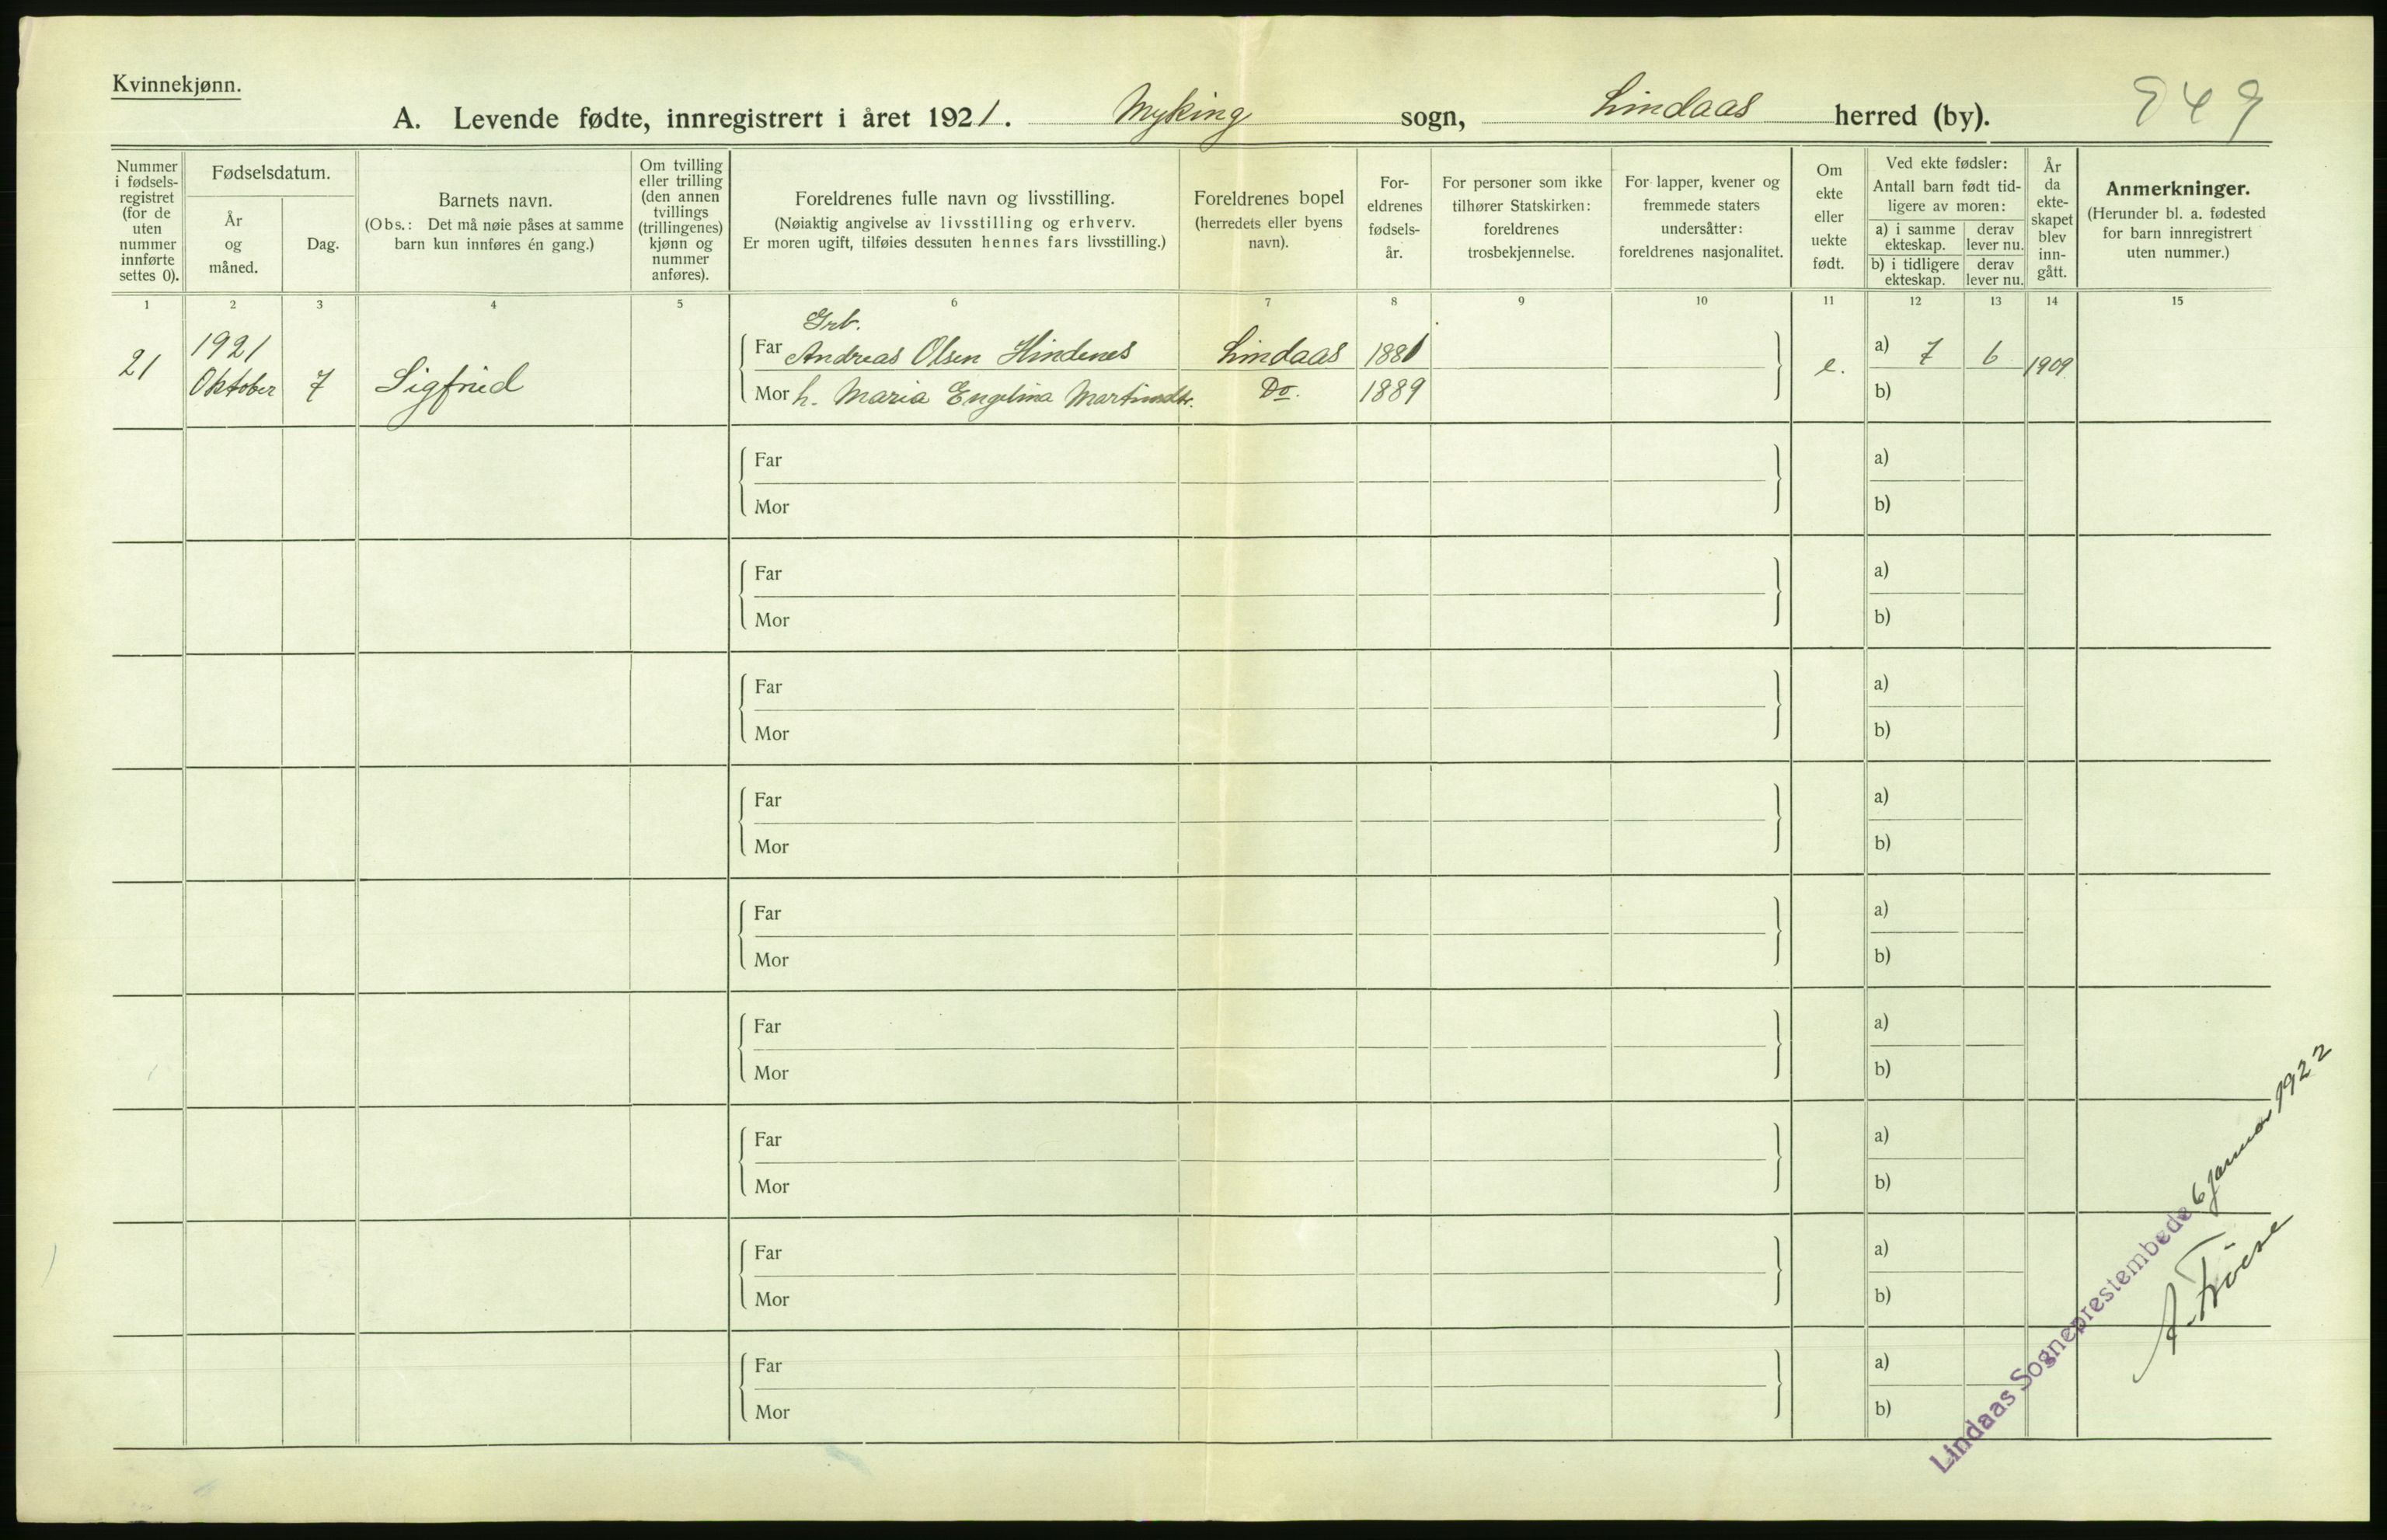 Kvinnekjønn.
A. Levende fødte, innregistrert i året 1921. Myking sogn, Lindaas herred (by). 949
Nummer i fødselsregistret (for de uten nummer innførte settes 0).
Fødselsdatum.
År og måned.
Dag.
Barnets navn.
(Obs.: Det må nøie påses at samme barn kun innføres én gang.)
Om tvilling eller trilling (den annen tvillings (trillingenes) kjønn og nummer anføres).
Foreldrenes fulle navn og livsstilling.
(Nøiaktig angivelse av livsstilling og erhverv.
Er moren ugift, tilføies dessuten hennes fars livsstilling.)
Foreldrenes bopel
(herredets eller byens navn).
Foreldrenes fødselsår.
For personer som ikke tilhører Statskirken: foreldrenes trosbekjennelse.
For lapper, kvener og fremmede staters undersåtter: foreldrenes nasjonalitet.
Om ekte eller uekte født.
Ved ekte fødsler:
Antall barn født tidligere av moren:
a) i samme ekteskap.
derav lever nu.
b) i tidligere ekteskap.
derav lever nu.
År da ekteskapet blev inngått.
Anmerkninger.
(Herunder bl. a. fødested for barn innregistrert uten nummer.)
1 2 3 4 5 6 7 8 9 10 11 12 13 14 15
Grb.
21 1921 Oktober 7 Sigfried
Far Andreas Olsen Hindenes Lindaas 1881 e. a) 7 6 1909
Mor h. Maria Engelina Martinsdtr. Do. 1889 b)
Far a)
Mor b)
Far a)
Mor b)
Far a)
Mor b)
Far a)
Mor b)
Far a)
Mor b)
Far a)
Mor b)
Far a)
Mor b)
Far a)
Mor b)
Far a)
Mor b)
Lindaas Sogneprestembede 6 januar 1922